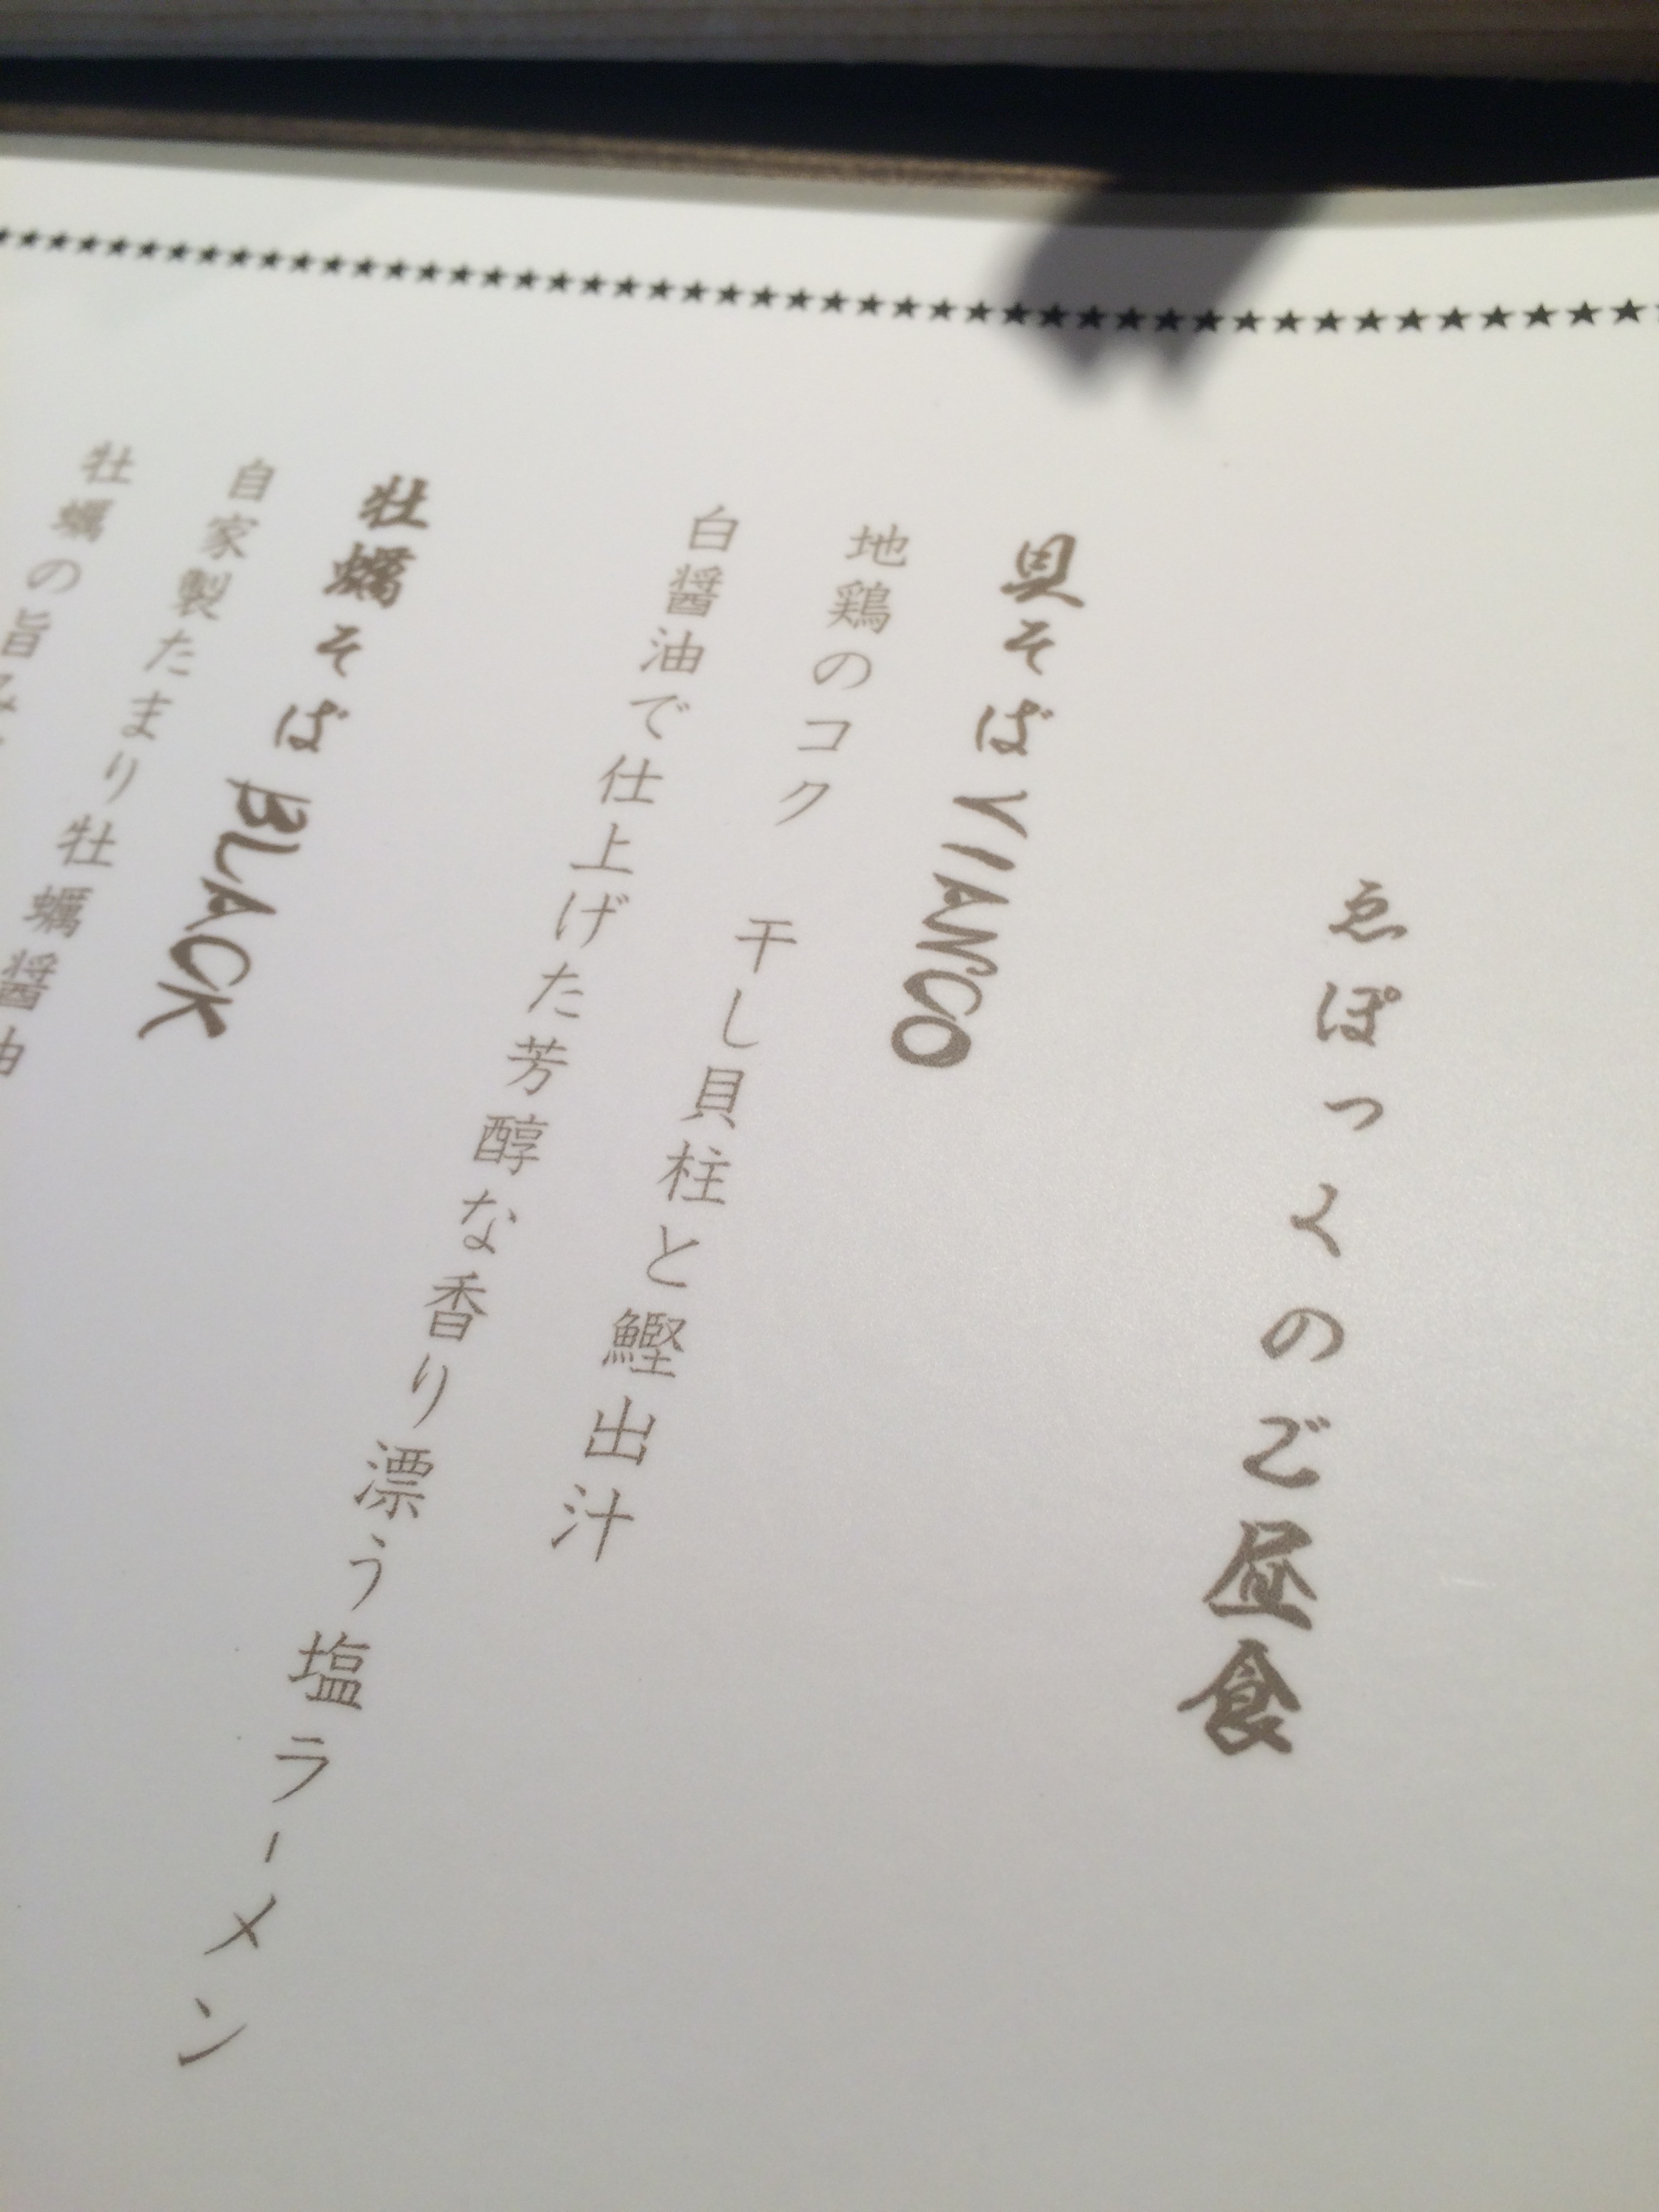 ゑぽっくのご昼食
貝そばVIANCO
地鶏のコク　干し貝柱と鰹出汁
白醤油で仕上げた芳醇な香り漂う塩ラーメン
牡蠣そばBLACK
自家製たまり牡蠣醤油
牡蠣の旨み